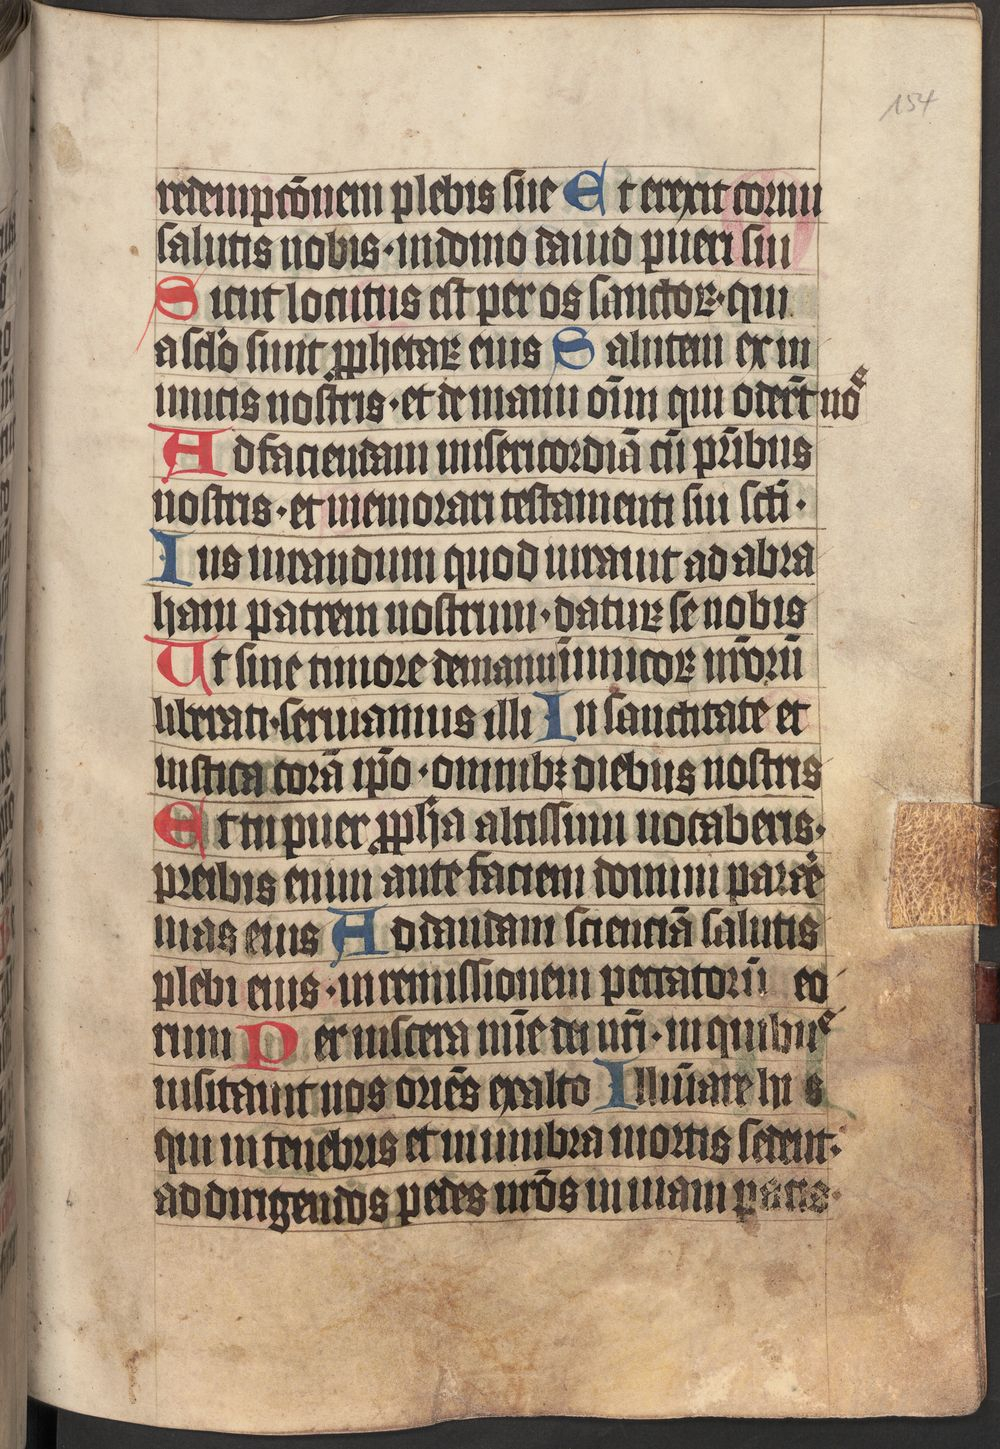 154
redempcōnem plebis sue Et erexit cornu
salutis nobis · in domo dauid pueri sui
Sicut locutus est per os sanctoꝝ · qui
a sclo sunt ꝓphetaꝝ eius Salutem ex in
imicis nostris · et de manu oīm qui oderūt nos
Ad faciendam misericordiā cū pribus
nostris · et memorari testamenti sui scti ·
Ius iurandum quod iurauit ad abra
ham patrem nostrum · daturꝝ se nobis
Ut sine timore de manu inimicoꝝ nrorū
liberati · seruiamus illi In sanctitate et
iusticia corā ipo · omnibꝫ diebus nostris
Et tu puer ꝓpha altissimi uocaberis ·
preibis enim ante faciem domini parare
uias eius Ad dandam scienciā salutis
plebi eius · in remissionem peccatorū eo
rum Per uiscera mie dei nri · in quibus
uisitauit nos oriēs ex alto Illūare hiis
qui in tenebris et in umbra mortis sedent ·
ad dirigendos pedes nros in uiam pacis ·